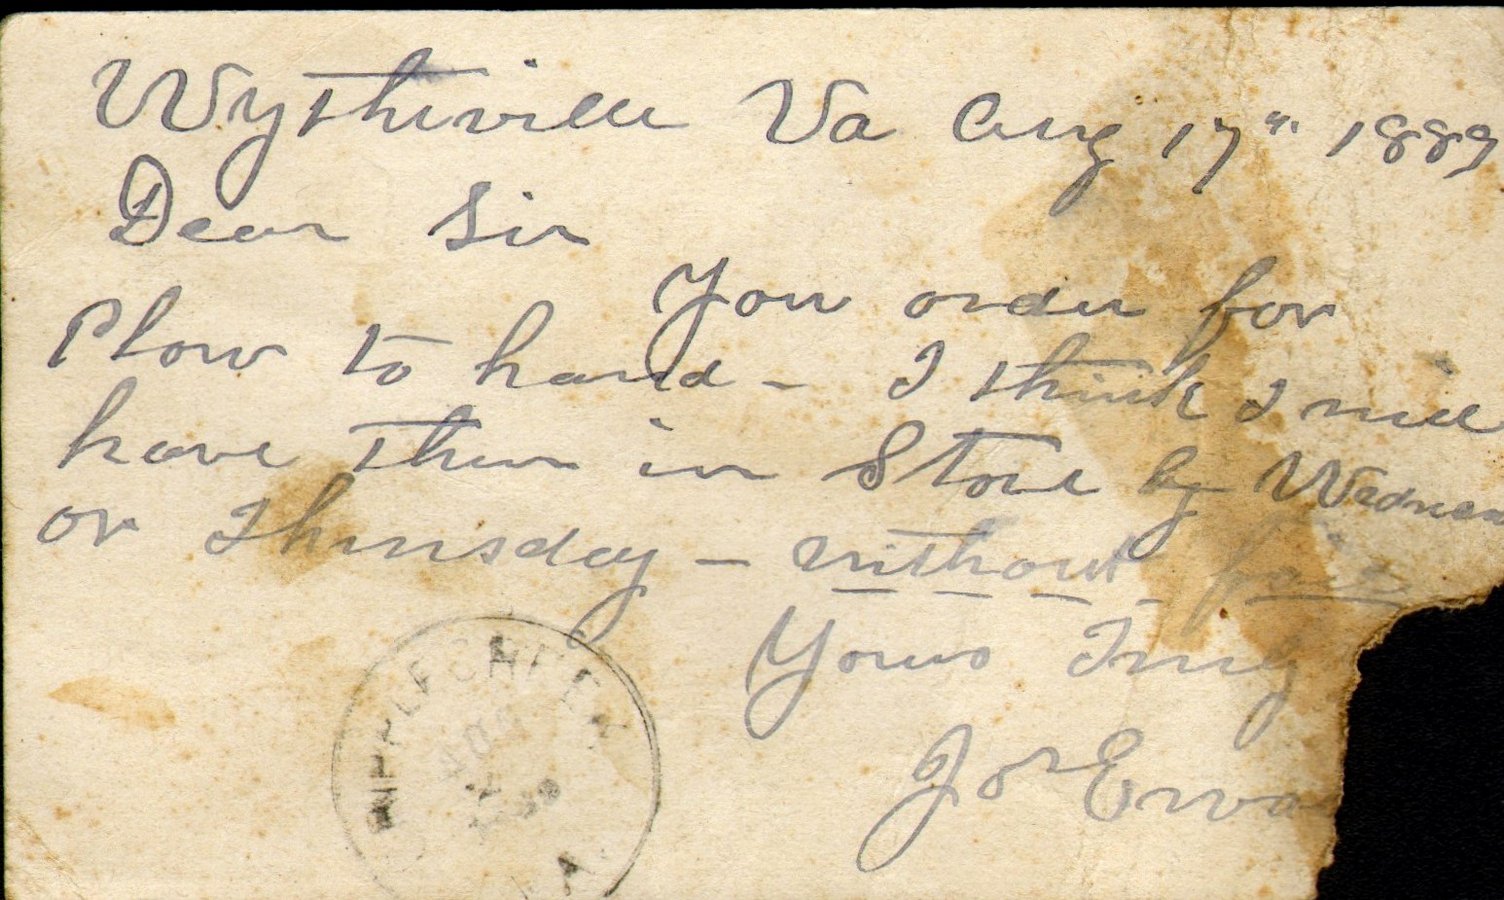 Wytheville Va Aug 17" 1889
Dear Sir
Your order for
Plow to hand - I think I will
have them in Store by Wednes
or Thursday - without fail
Yours Truly
Jos Ewa
APPLECREEK
AUG
VA